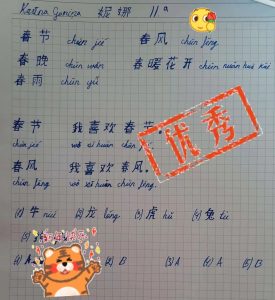 Karina Gumira 妮娜 11ª
春节 chūn jié 春风 chūn fēng
春晚 chūn wǎn 春暖花开 chūn nuǎn huā kāi
春雨 chūn yǔ
优秀
春节 我喜欢春节。
chūn jié wǒ xǐ huān chūn jié
春风 我喜欢春风。
chūn fēng wǒ xǐ huān chūn fēng.
(1) 牛 niú (2) 龙 lóng (3) 虎 hǔ (4) 兔 tù
(5)
(1) A (2) B (3) A (4) A (5) B